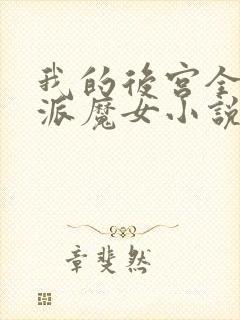 我的後宮全
派魔女小說
章斐然